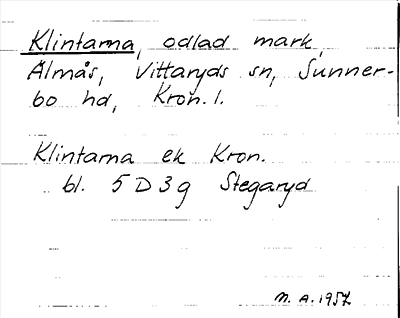 Klintarna, odlad mark,
Älmås, Vittaryds sn, Sunner-
bo hd, Kron. l.
Klintarna ek Kron.
bl. 5 D 3 g Stegaryd
M. A. 1957